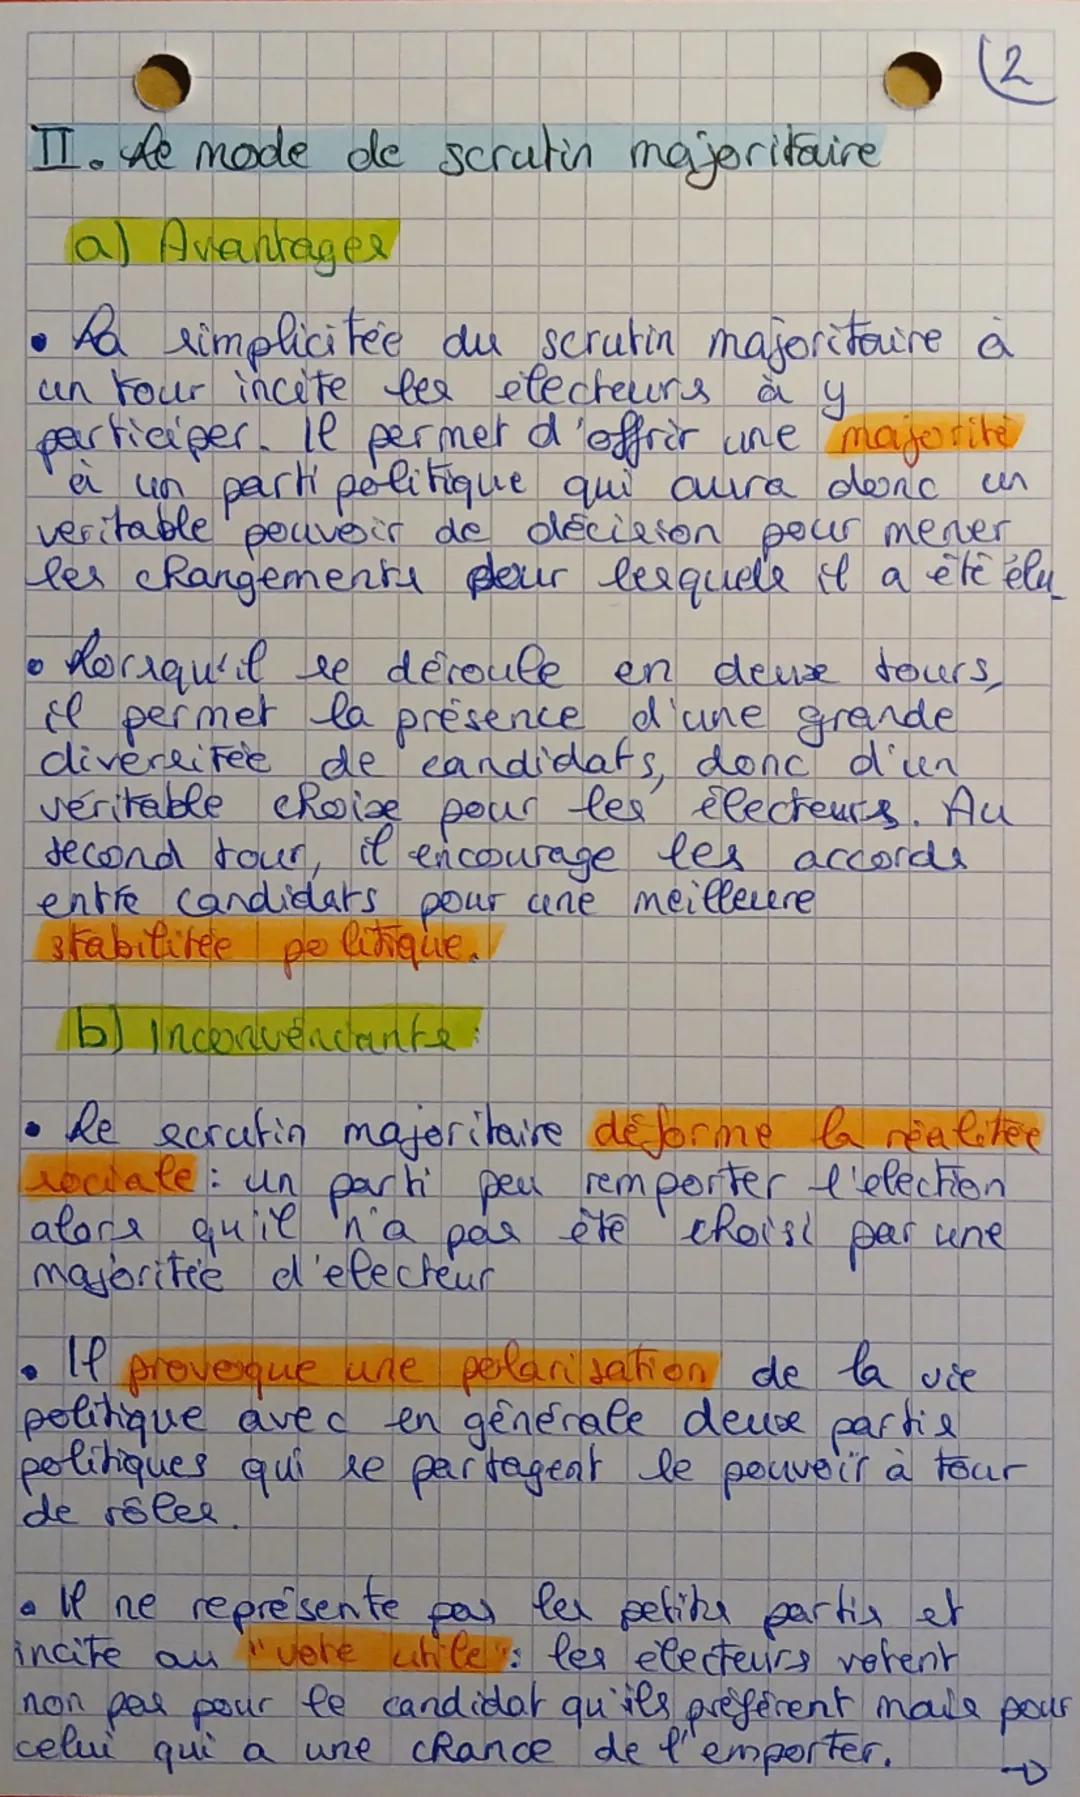 (2
II. Le mode de scrutin majoritaire
a) Avantages
• La simplicitée du scrutin majoritaire à
un tour incite les électeurs à y
participer. Il permet d'offrir une majorité
à un parti politique qui aura donc un
véritable pouvoir de décision pour mener
les changements pour lesquels il a été élu
• Lorsqu'il se déroule en deux tours,
il permet la présence d'une grande
diversitée de candidats, donc d'un
véritable choix pour les électeurs. Au
second tour, il encourage les accords
entre candidats pour une meilleure
stabilitée politique.
b) Inconvéniants :
• Le scrutin majoritaire déforme la réalitée
sociale : un parti peu remporter l'élection
alors qu'il n'a pas été choisi par une
majoritée d'électeur
• Il provoque une polarisation de la vie
politique avec en générale deux partis
politiques qui se partagent le pouvoir à tour
de rôles.
• Il ne représente pas les petits partis et
incite au "vote utile" : les électeurs votent
non pas pour le candidat qu'ils préfèrent mais pour
celui qui a une chance de l'emporter.
→